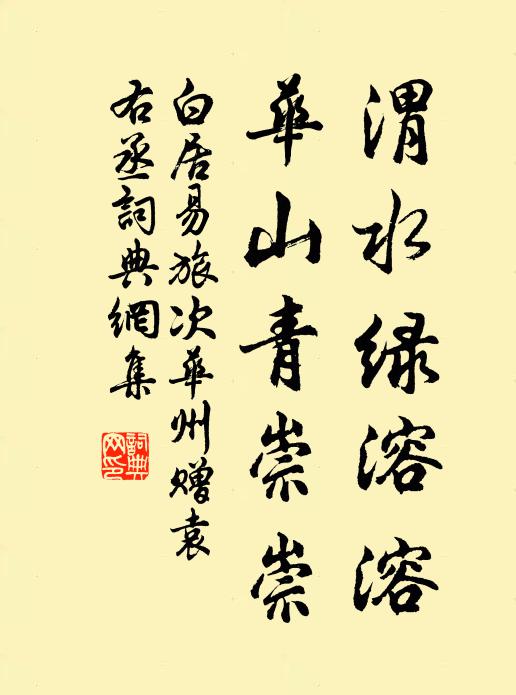 渭水绿溶溶
華山青崇崇
白居易旅次華州赠袁
右丞詞典網集
詞典網印